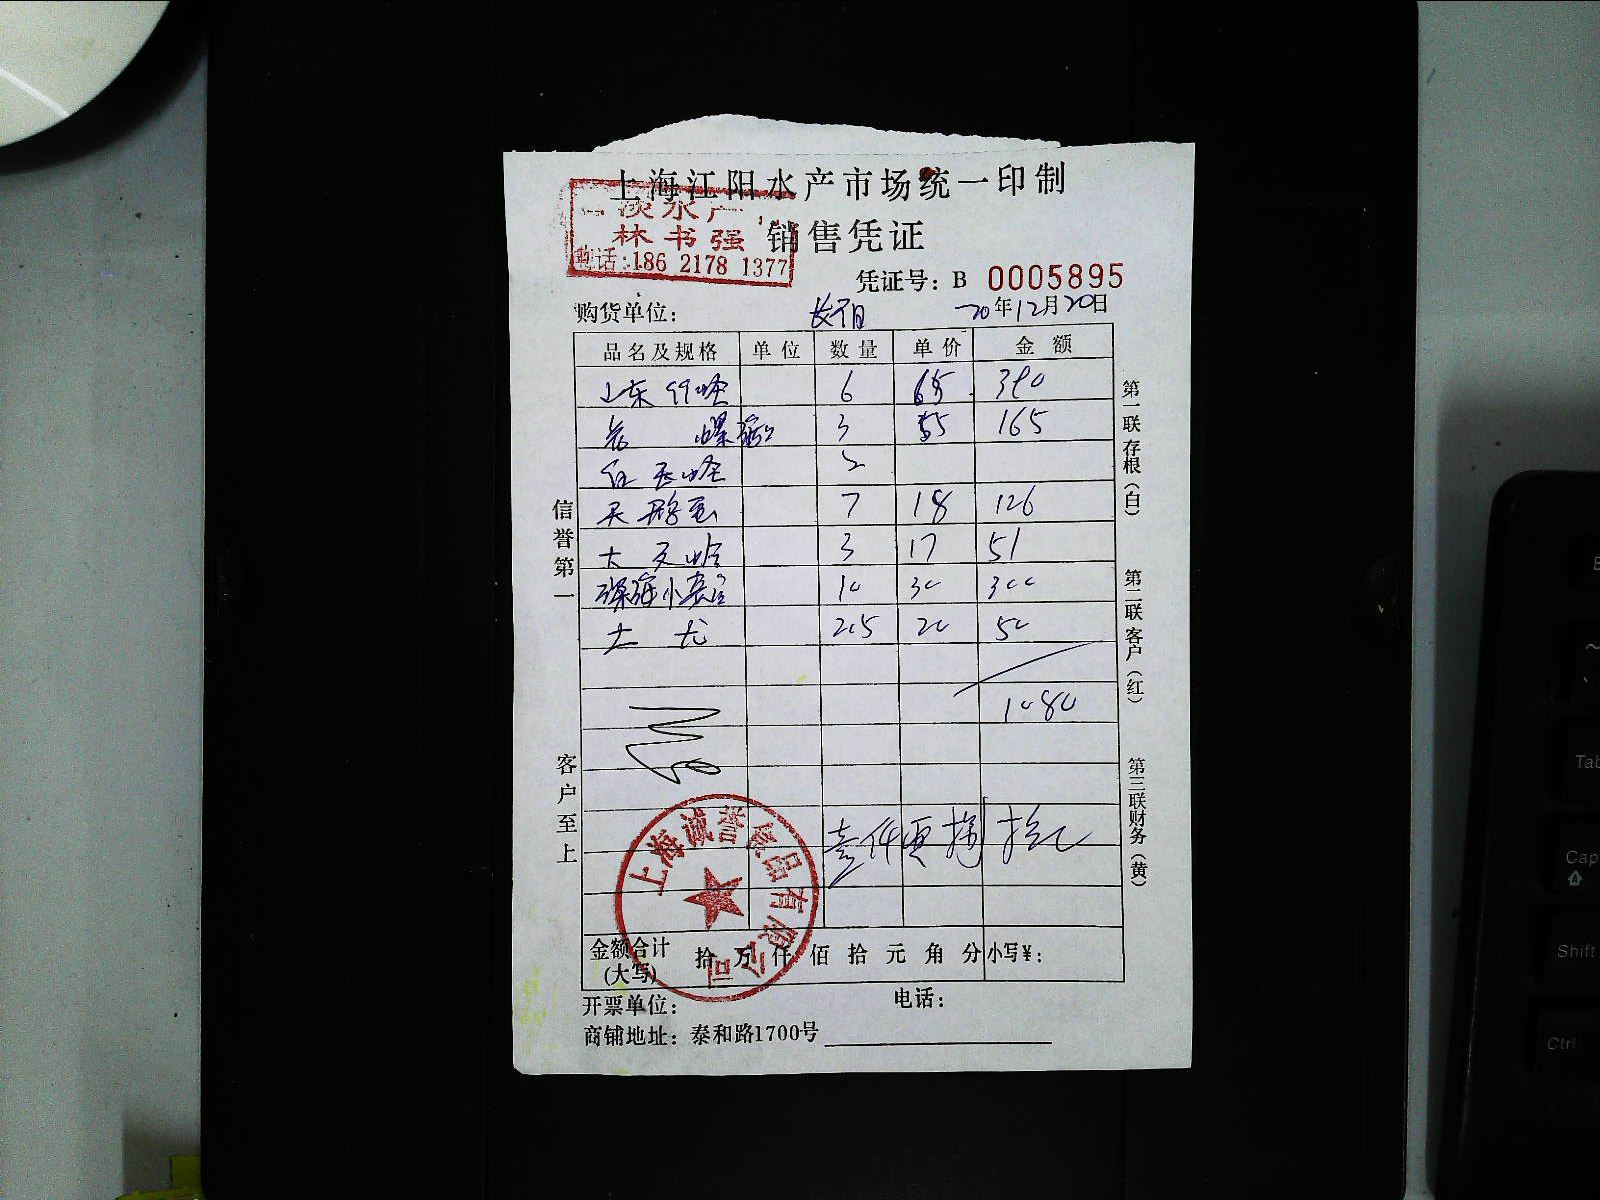 上海江阳水产市场统一印制
淡水产
林书强
电话:186 2178 1377
销售凭证
凭证号：B 0005895
购货单位：
20年12月20日
品名及规格 单位 数量 单价 金额
山东 6 65 390
花 螺 3 55 165
红 2
天鹅蛋 7 18 126
大 3 17 51
小 10 30 300
2.5 20 50
1080
壹仟 捌拾
金额合计
(大写) 拾万仟佰拾元角分 小写¥：
开票单位： 电话：
商铺地址：泰和路1700号
上海诚誉食品有限公司
信誉第一
客户至上
第一联存根（白）
第二联客户（红）
第三联财务（黄）
Tab
Cap
Shift
Ctrl